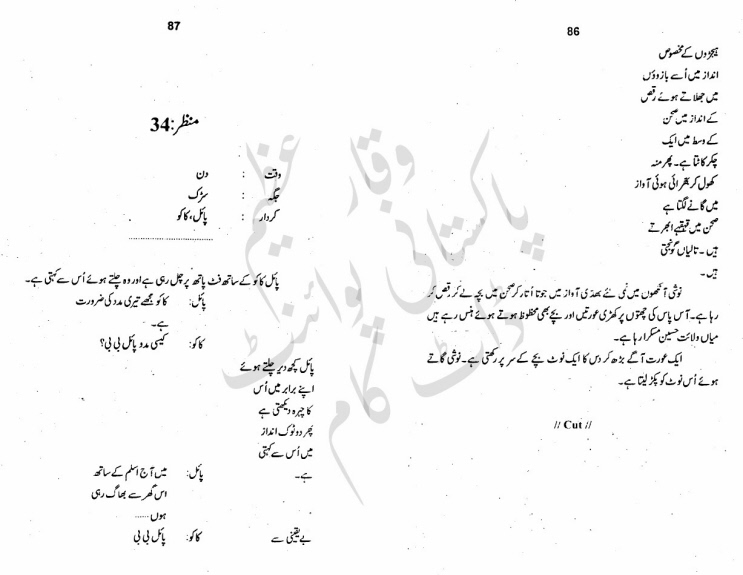 86
ہیجڑوں کے مخصوص
انداز میں اُسے بازوؤں
میں جھلاتے ہوئے رقص
کے انداز میں صحن
کے وسط میں ایک
چکر کاٹتا ہے۔ پھر منہ
کھول کر بھرائی ہوئی آواز
میں گانے لگتا ہے
صحن میں قہقہے اُبھرتے
ہیں۔ تالیاں گونجتی
ہیں۔
نوشی آنکھوں میں نمی لئے بھدی آواز میں جوتا اُتار کر صحن میں بچہ لے کر رقص کر
رہا ہے۔ آس پاس کی چھتوں پر کھڑی عورتیں اور بچے بھی محظوظ ہوتے ہوئے ہنس رہے ہیں
میاں ولائت حسین مسکرا رہا ہے۔
ایک عورت آگے بڑھ کر دس کا ایک نوٹ بچے کے سر پر رکھتی ہے۔ نوشی گاتے
ہوئے اُس نوٹ کو پکڑ لیتا ہے۔
// Cut //
87
منظر:34
وقت : دن
جگہ : سڑک
کردار : پائل، کاکو
......................
پائل کاکو کے ساتھ فٹ پاتھ پر چل رہی ہے اور وہ چلتے ہوئے اُس سے کہتی ہے۔
پائل: کاکو مجھے تیری مدد کی ضرورت
ہے۔
کاکو: کیسی مدد پائل بی بی؟
پائل کچھ دیر چلتے ہوئے
اپنے برابر میں اُس
کا چہرہ دیکھتی ہے
پھر دو ٹوک انداز
میں اُس سے کہتی
ہے۔ پائل: میں آج اسلم کے ساتھ
اس گھر سے بھاگ رہی
ہوں......
بے یقینی سے کاکو: پائل بی بی
وقار عظیم
پاکستانی پوائنٹ
ڈاٹ کام